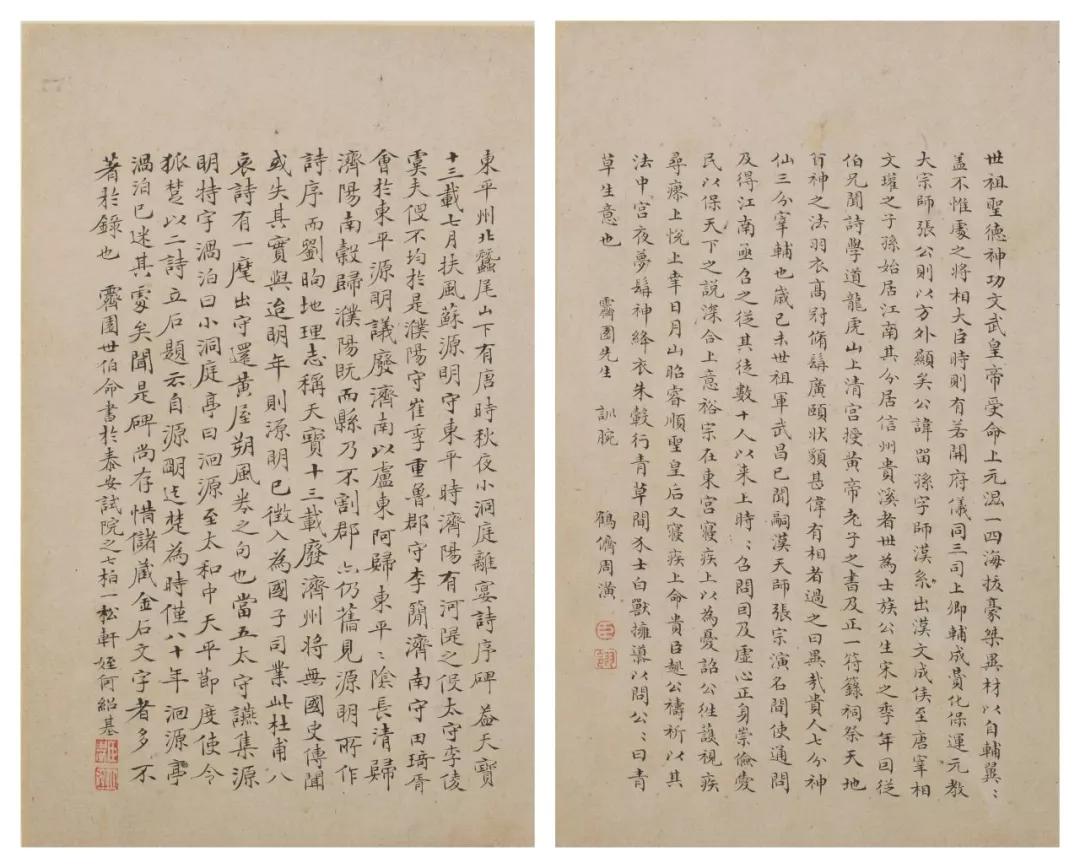 世祖聖德神功文武皇帝受命上元混一四海拔豪桀異材以自輔翼〻
盖不惟處之將相大臣時則有若開府儀同三司上卿輔成贊化保運元教
大宗師張公則以方外顯矣公諱留孫字師漢系出漢文成侯至唐宰相
文瓘之子孫始居江南其分居信州貴溪者世為士族公生宋之季年囙從
伯兄聞詩學道龍虎山上清宮授黃帝老子之書及正一符籙祠祭天地
百神之法羽衣高冠脩髯廣頤狀貌甚偉有相者過之曰異哉貴人七分神
仙三分宰輔也歲己未世祖軍武昌已聞嗣漢天師張宗演名間使通問
及得江南亟召之從其徒數十人以来上時〻召問囙及虛心正身崇儉愛
民以保天下之說深合上意裕宗在東宮寢疾上以為憂詔公往護視疾
尋瘳上悅上幸日月山昭睿順聖皇后又寢疾上命貴臣趣公禱祈以其
法中宮夜夢髯神絳衣朱轂行青草間介士白獸擁導以問公〻曰青
草生意也 霽園先生 訓腕 鶴儕周潢
東平州北蠶尾山下有唐時秋夜小洞庭離宴詩序碑葢天寶
十三載七月扶風蘇源明守東平時濟陽有河隄之役太守李倰
虞夫役不均於是濮陽守崔季重魯郡守李蘭濟南守田琦胥
會於東平源明議廢濟南以盧東阿歸東平〻陰長清歸
濟陽南穀歸濮陽既而縣乃不割郡亦仍舊見源明所作
詩序而劉昫地理志稱天寶十三載廢濟州將無國史傳聞
或失其實與迨明年則源明已徵入為國子司業此杜甫八
哀詩有一麾出守還黃屋朔風卷之句也當五太守讌集源
明特字渦泊曰小洞庭亭曰洄源至太和中天平節度使令
狐楚以二詩立石題云自源明迄楚為時僅八十年洄源亭
渦泊已迷其處矣聞是碑尚存惜儲藏金石文字者多不
著於錄也 霽園世伯命書於泰安試院之七柏一松軒 姪何紹基